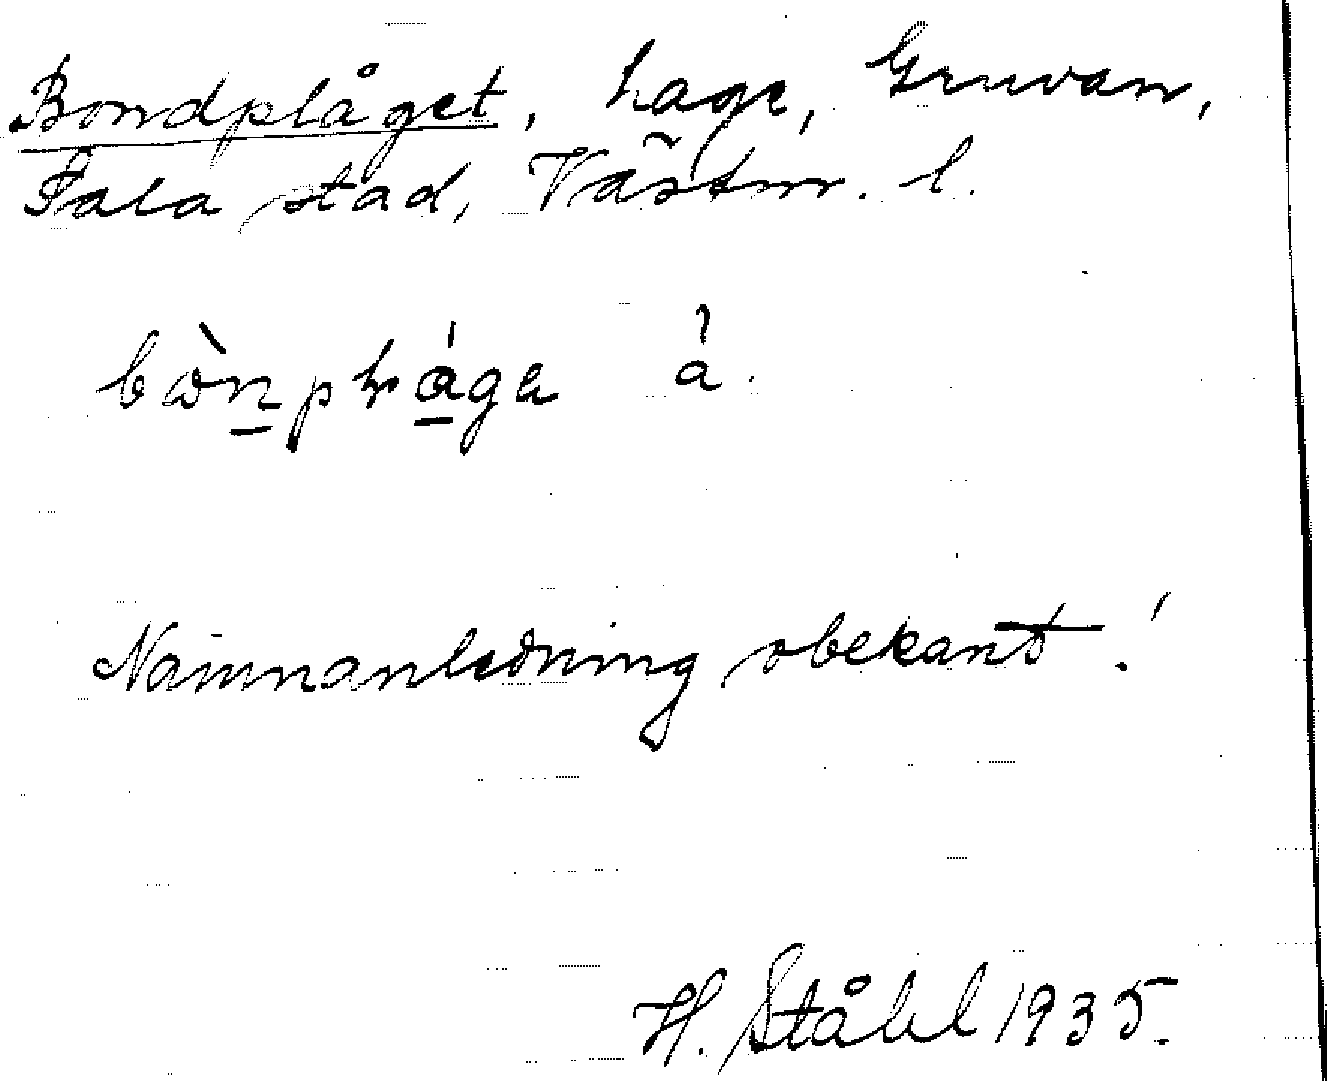 Bondplåget, hage, Gruvan,
Fala stad, Västm. l.
Namnanledning obekant!
H. Ståhl 1935.